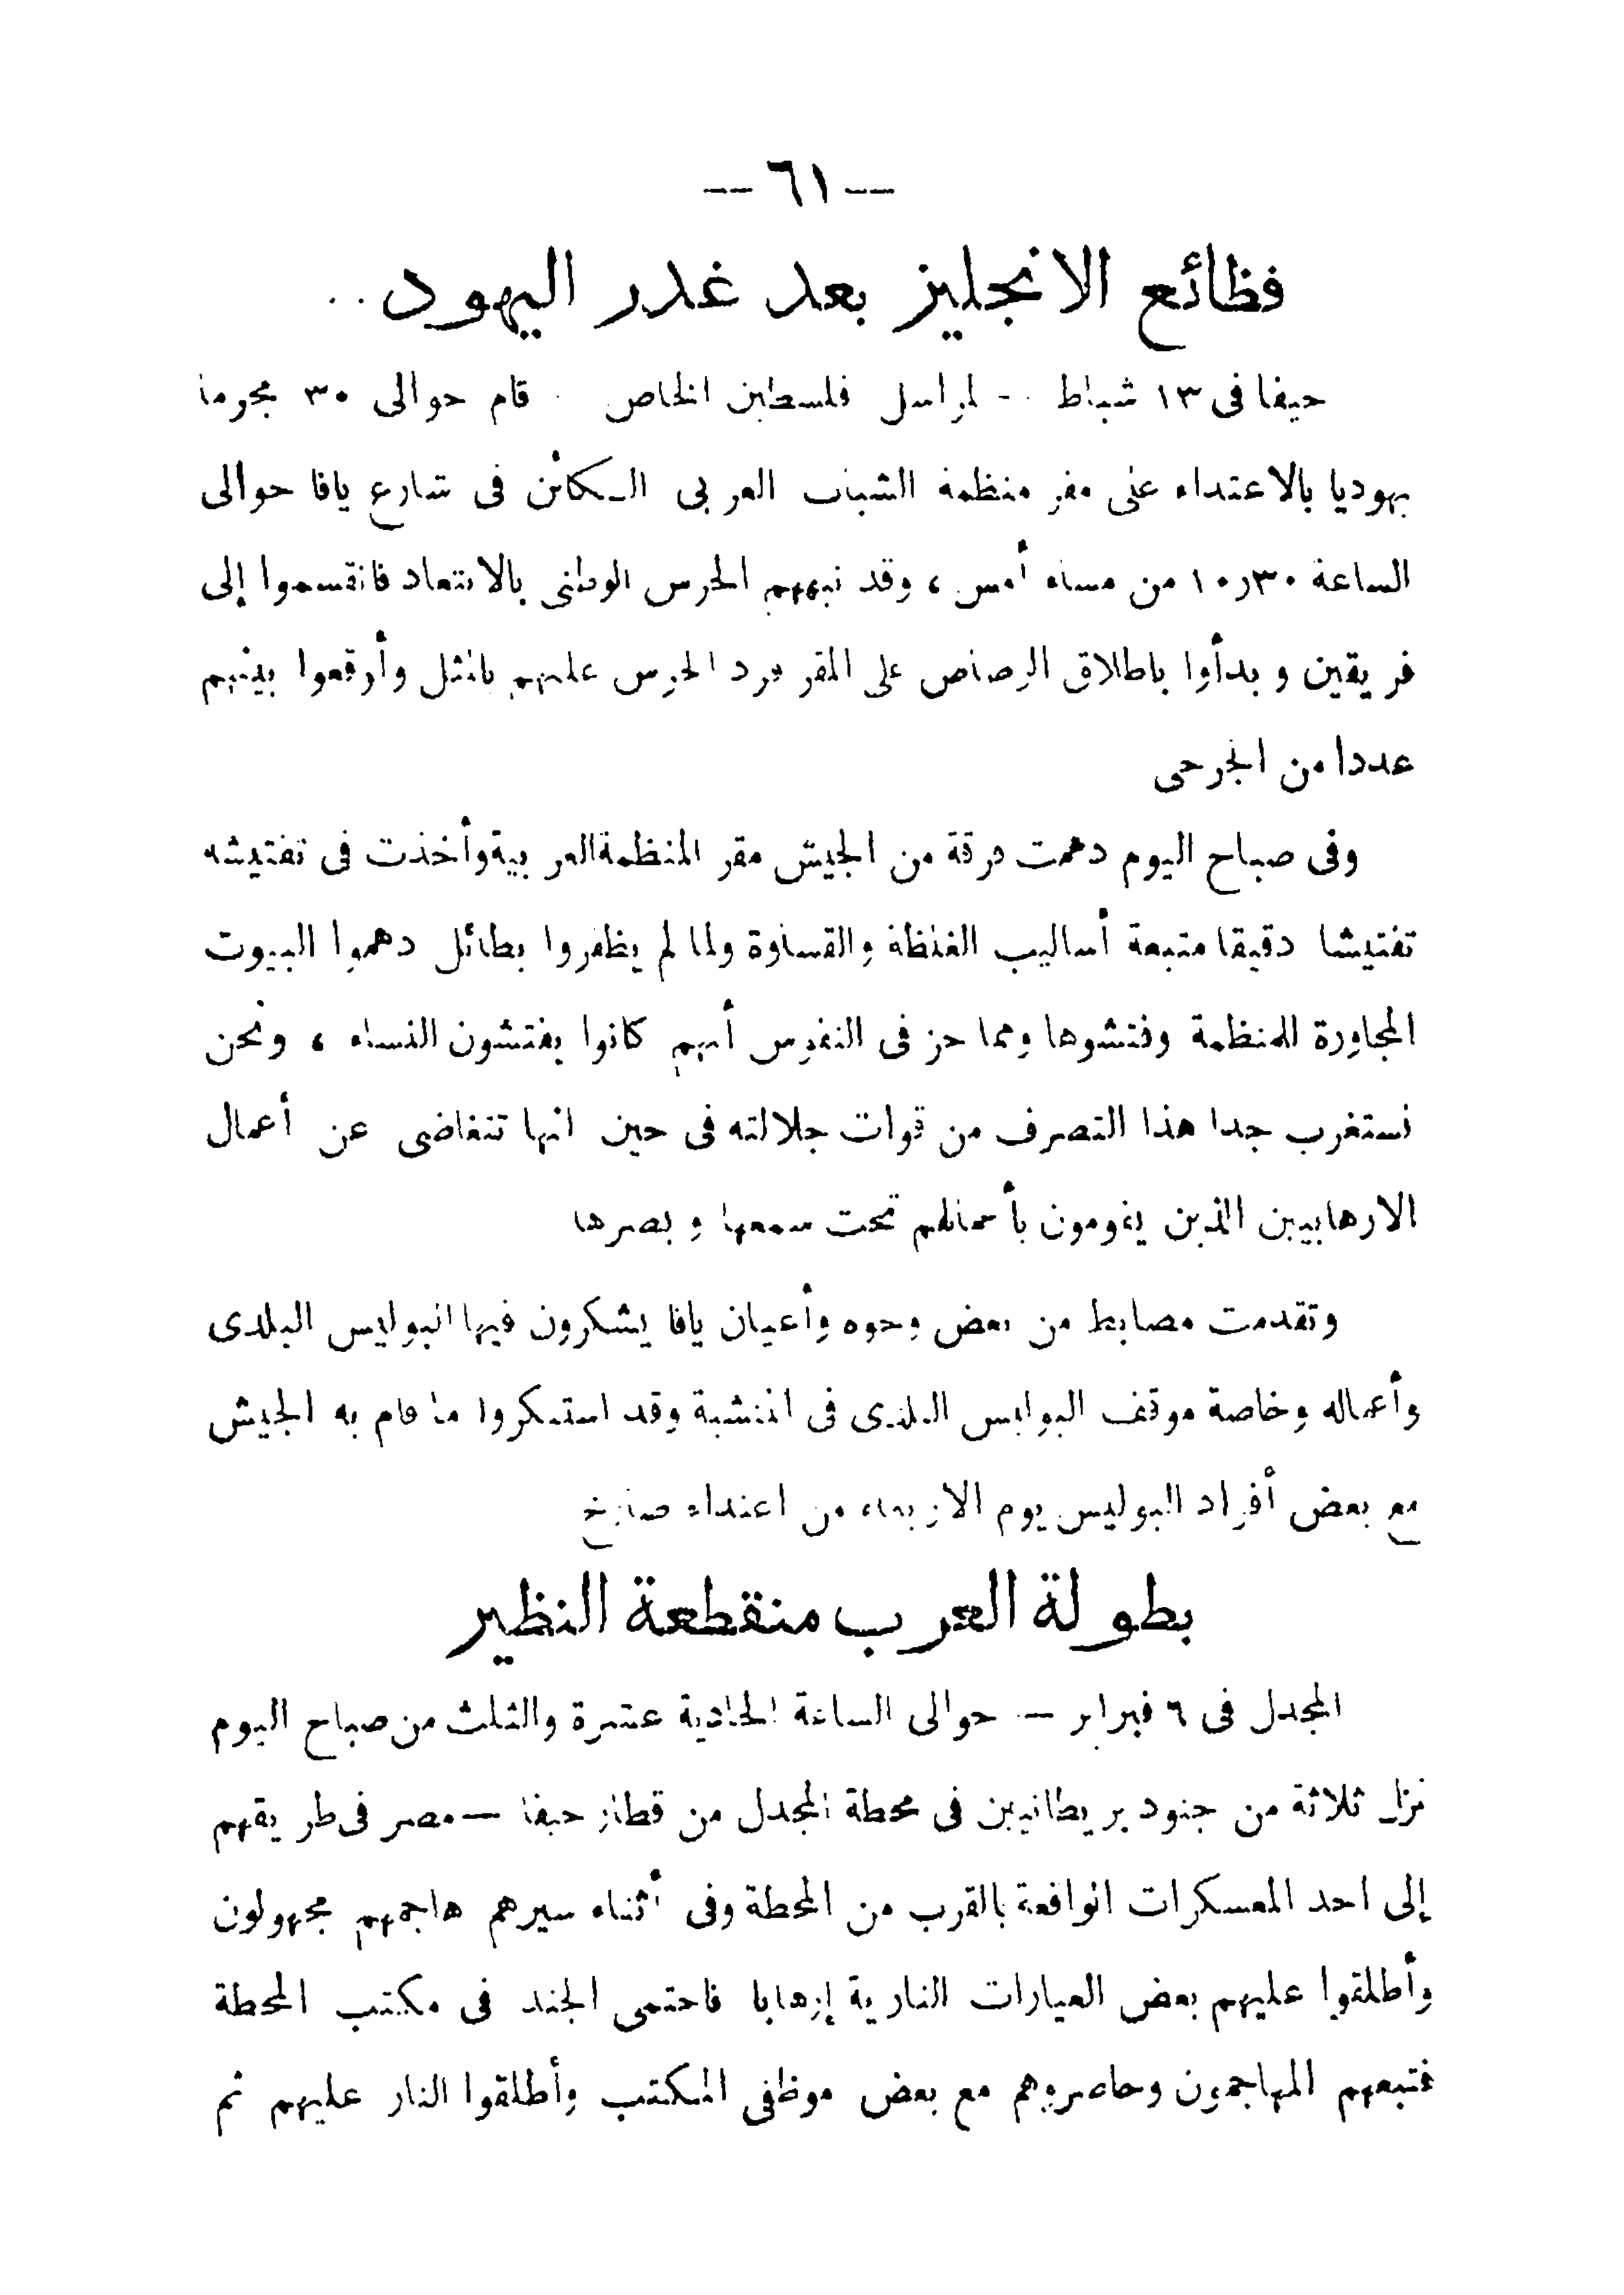 — ٦١ —
فظائع الانجليز بعد غدر اليهود . .
حيفا فى ١٣ شباط - لمراسل فلسطين الخاص . قام حوالى ٣٠ مجرما
يهوديا بالاعتداء على مقر منظمة الشباب العربى الكائن فى شارع يافا حوالى
الساعة ١٠٫٣٠ من مساء أمس ، وقد نبههم الحرس الوطنى بالابتعاد فانقسموا إلى
فريقين وبدأوا باطلاق الرصاص على المقر فرد الحرس عليهم بالمثل وأوقعوا بينهم
عددا من الجرحى
وفى صباح اليوم دهمت فرقة من الجيش مقر المنظمة العربية وأخذت فى تفتيشه
تفتيشا دقيقا متبعة أساليب الغلظة والقساوة ولما لم يظفروا بطائل دهموا البيوت
المجاورة للمنظمة وفتشوها ومما حز فى النفوس أنهم كانوا يفتشون النساء ، ونحن
نستغرب جدا هذا التصرف من قوات جلالته فى حين انها تتغاضى عن أعمال
الارهابيين الذين يقومون بأعمالهم تحت سمعها وبصرها
وتقدمت مضابط من بعض وجوه وأعيان يافا يشكرون فيها البوليس البلدى
وأعماله وخاصة موقف البوليس البلدى فى المنشية وقد استنكروا ما قام به الجيش
مع بعض أفراد البوليس يوم الاربعاء من اعتداء صارخ
بطولة العرب منقطعة النظير
المجدل فى ٦ فبراير — حوالى الساعة الحادية عشرة والثلث من صباح اليوم
نزل ثلاثة من جنود بريطانيين فى محطة المجدل من قطار حيفا — مصر فى طريقهم
إلى احد المعسكرات الواقعة بالقرب من المحطة وفى أثناء سيرهم هاجمهم مجهولون
وأطلقوا عليهم بعض العيارات النارية إرهابا فاحتمى الجند فى مكتب المحطة
فتبعهم المهاجمون وحاصروهم مع بعض موظفى المكتب وأطلقوا النار عليهم ثم